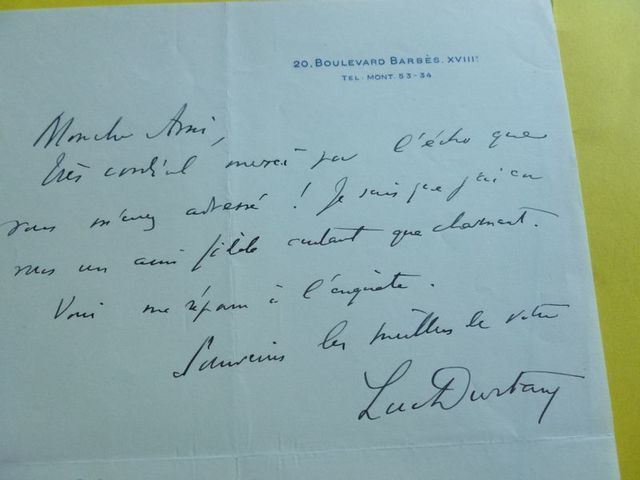 20, BOULEVARD BARBÈS. XVIIIᵉ
TEL. MONT. 53-34
Mon cher Ami,
Très cordial merci par l'écho que
vous m'avez adressé ! Je sais que j'ai en
vous un ami fidèle autant que charmant.
Voici ma réponse à l'enquête.
Souvenirs les meilleurs de votre
Luc Durtain